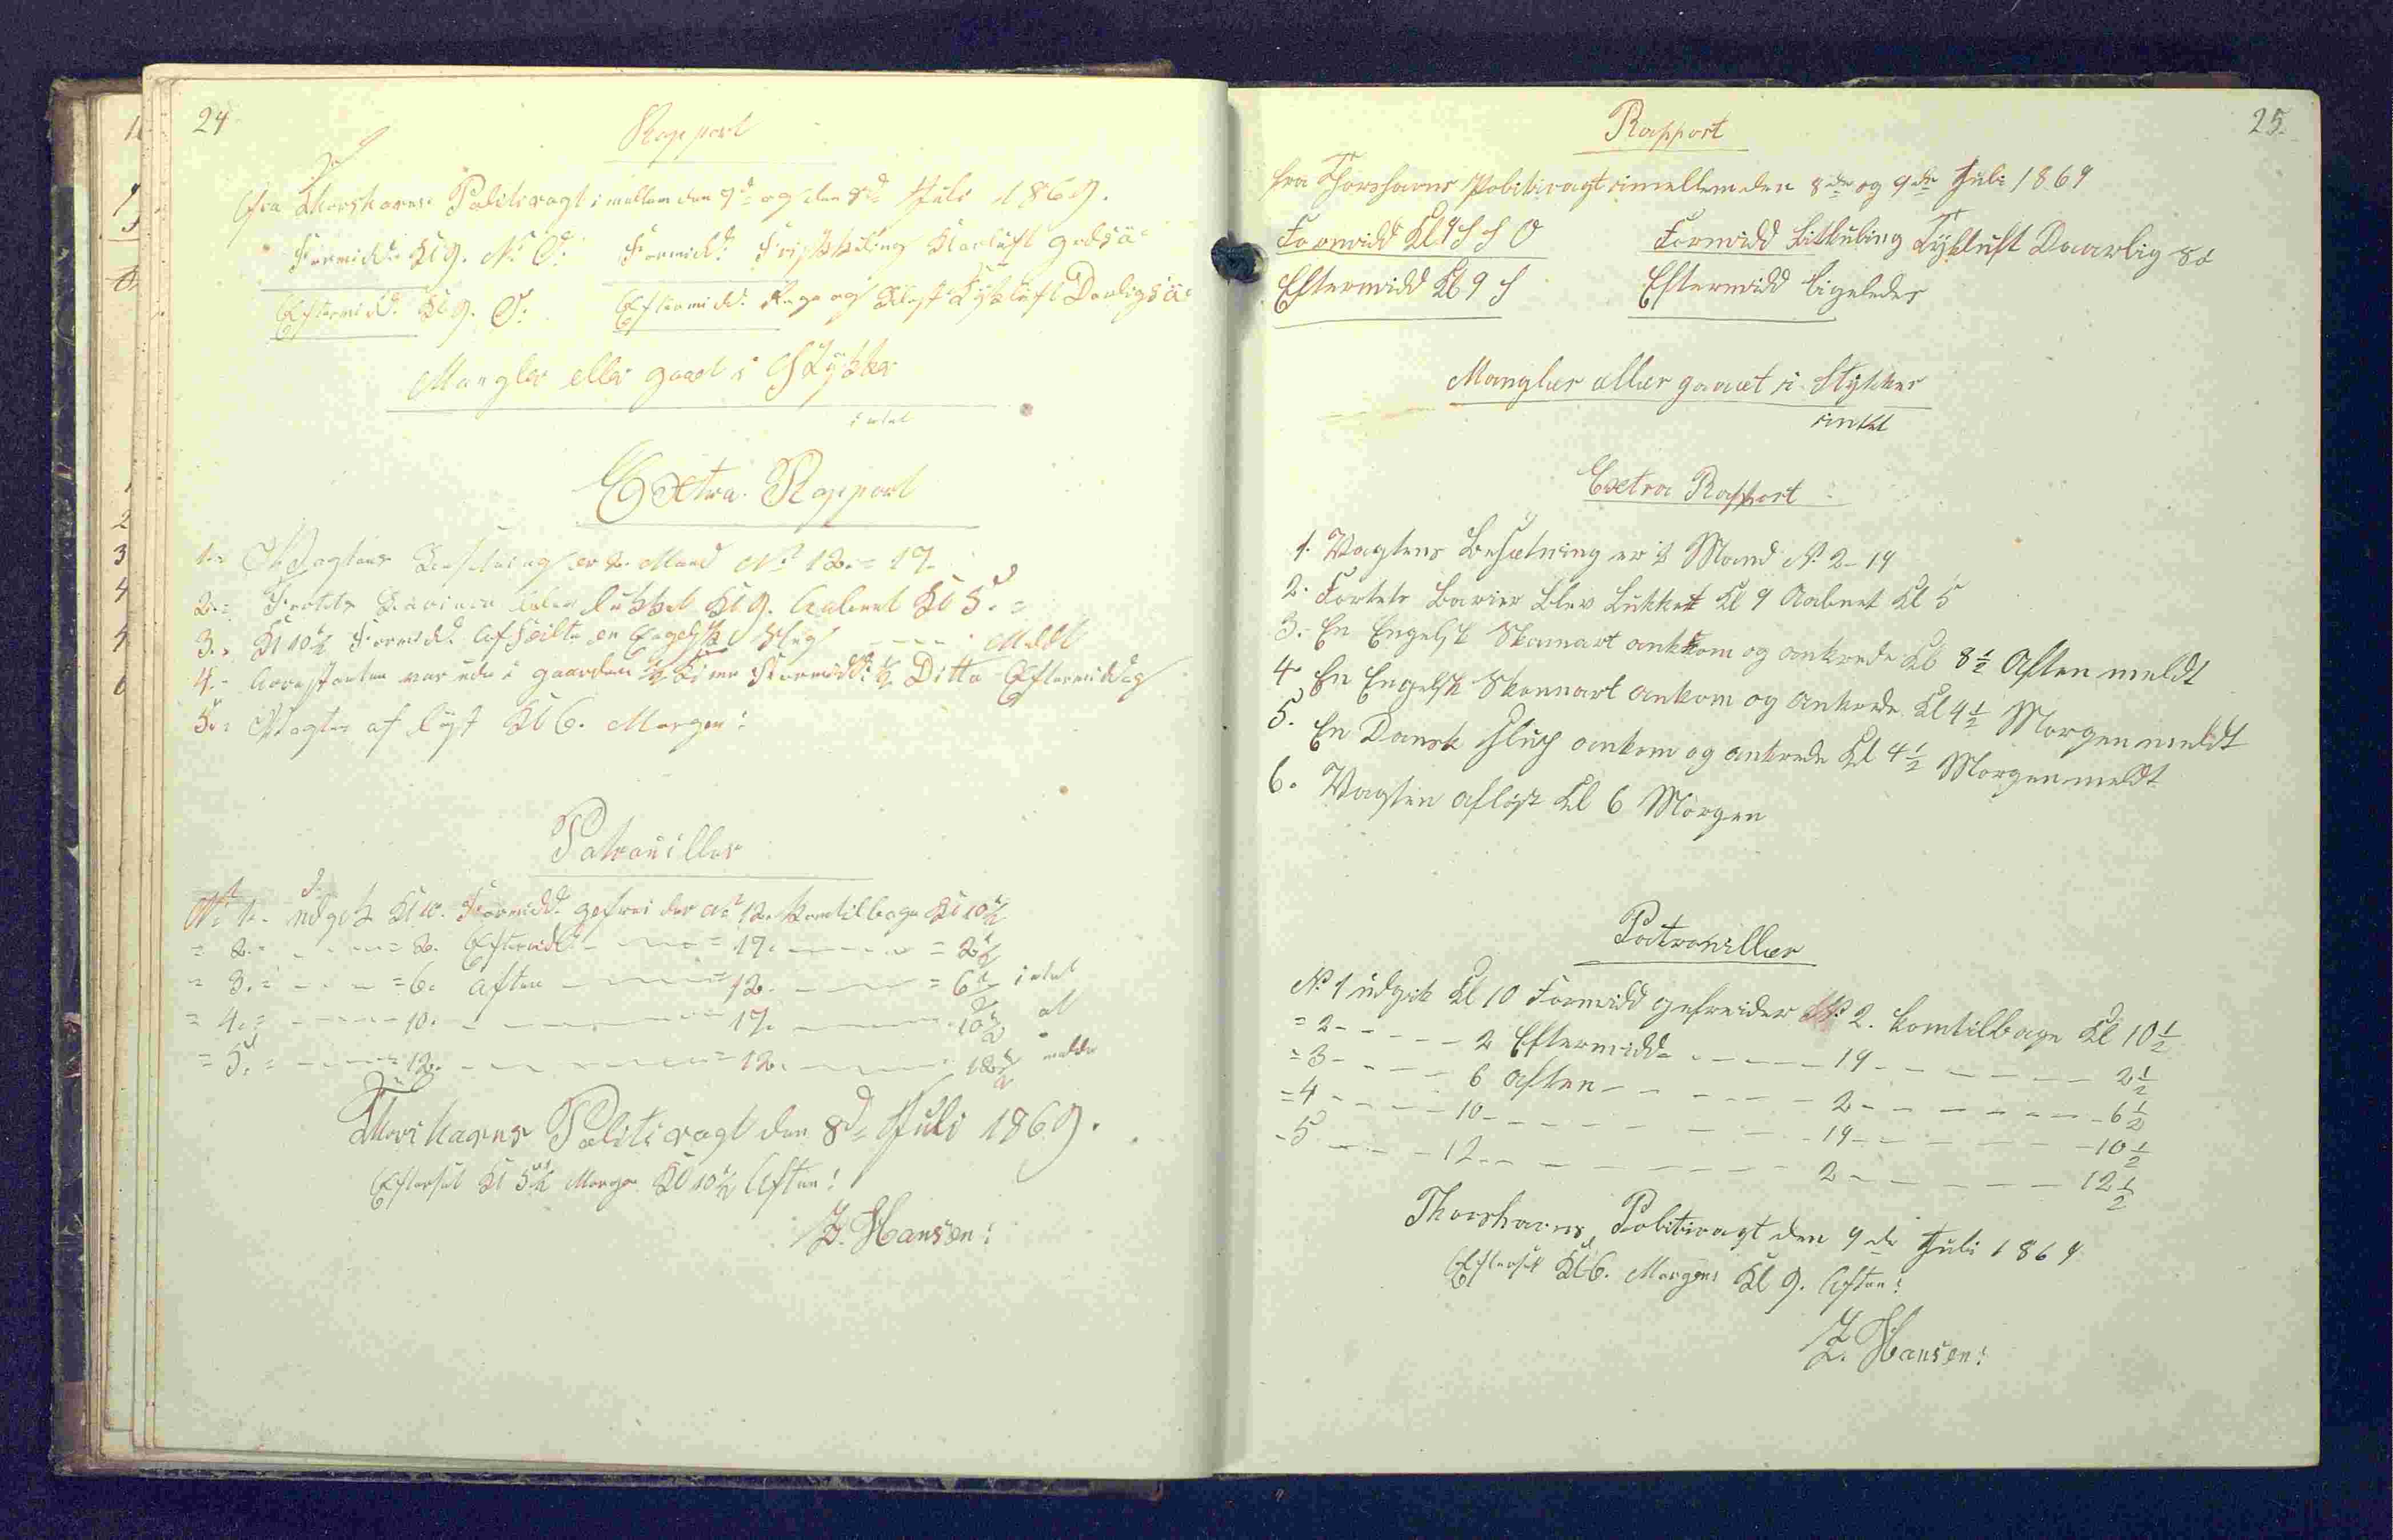 24
Rapport
fra Thorshavns Politivagt imellem den 7d og den 8d Juli 1869.
Formidd. Kl 9. N. O. Formidd. Frisk kuling Klarluft god sö
Eftermidd. Kl 9. O. Eftermidd. Regn og Blæst Tykluft Daarlig sö
Mangler eller gaaet i Stykker
intet
Extra Rapport
1. Vagtens Besætning er 2 Mand No 12 = 17.
2. Fortets Barier blev lukket Kl 9. Aabnet Kl 5.
3. Kl 10½ Formidd. afseilte en Engelsk Slup meldt
4. Arrestanten var ude i gaarden ½ Time Formidd. ½ Ditto Eftermiddag
5. Vagten aflöst Kl 6. Morgen
Patrouiller
No 1. udgik Kl 10. Formidd. gefreider No 12. komtilbage Kl 10½
= 2. = 2. Eftermidd. = 17. = 2½
= 3. = 6. Aften = 12. = 6½ intet
= 4. 10. 17. 10½ at
= 5. = 12. = 12. 12½ melde
Thorshavns Politivagt den 8d Juli 1869.
Efterset Kl 5½ Morgen Kl 10½ Aften!
Hansen!
25.
Rapport
fra Thorshavns Politivagt imellem den 8de og 9de Juli 1869
Formidd Kl 9 S S O Formidd Litkuling Tykluft Daarlig Sö
Eftermidd Kl 9 S Eftermidd ligeledes
Mangler eller gaaet i Stykker
intet
Extra Rapport
1. Vagtens Besætning er 2 Mand No 2 - 19
2. Fortets Barier blev Lukket Kl 9 Aabnet Kl 5
3. En Engelsk Skonnart ankom og ankrede Kl 8½ Aften meldt
4 En Engelsk Skonnart ankom og ankrede Kl 4½ Morgen meldt
5. En Dansk Slup ankom og ankrede Kl 4½ Morgen meldt
6. Vagten aflöst Kl 6 Morgen
Patrouiller
No 1 udgik Kl 10 Formidd gefreider No 2. komtilbage Kl 10½
= 2 - - - - 2 Eftermidd - - - - 19 - - - - 2½
= 3 - - - - 6 Aften - - - - 2 - - - - 6½
= 4 - - - - 10 - - - - 19 - - - - 10½
- 5 - - - - 12 - - - - 2 - - - - 12½
Thorshavns Politivagt den 9de Juli 1869
Efterset Kl 6. Morgen Kl 9. Aften!
Hansen!